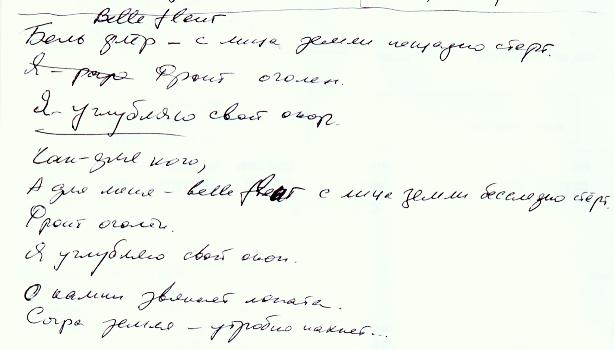 Belle fleur
Бель флер – с лица земли нещадно стерт.
Я – Фронт оголен.
Я – углубляю свой окоп.
Как – для кого,
А для меня – belle fleur с лица земли бесследно стёрт.
Фронт оголён.
Я углубляю свой окоп.
О камни звякает лопата.
Сыра земля – утробно пахнет...